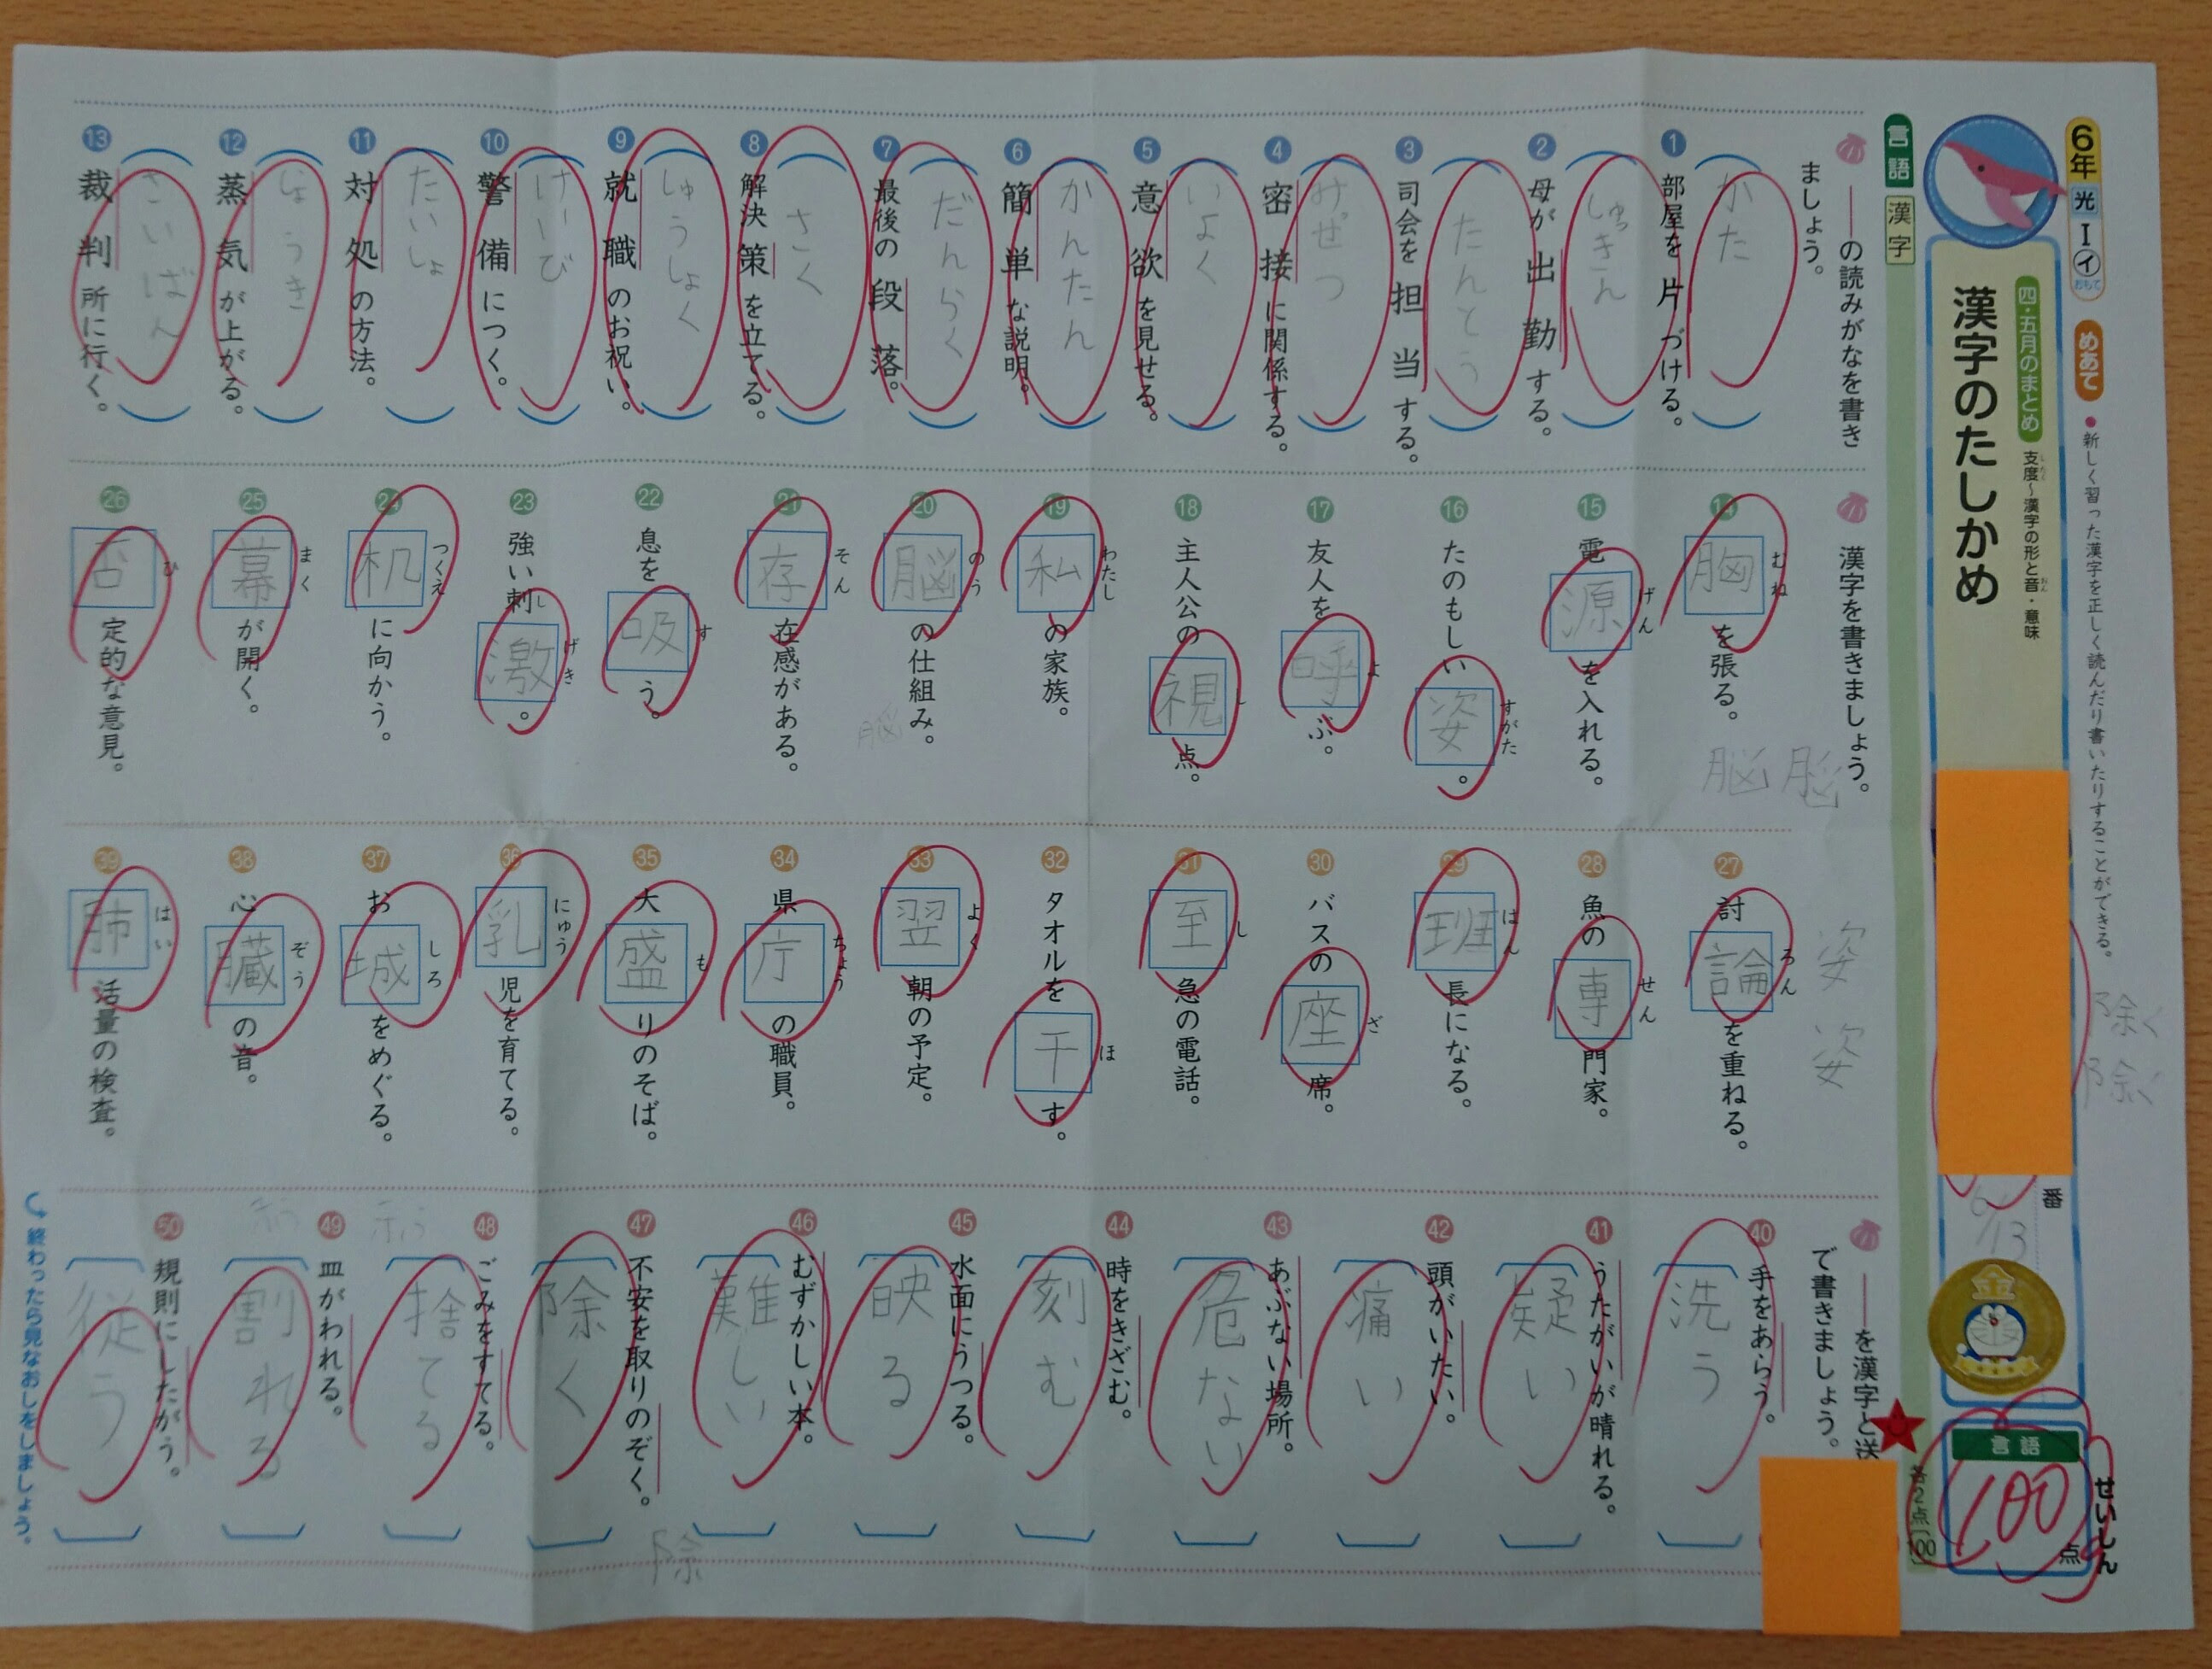 6年 光 Ⅰ イ おもて
めあて
●新しく習った漢字を正しく読んだり書いたりすることができる。
四・五月のまとめ
支度～漢字の形と音・意味
漢字のたしかめ
番
6/13
金
言語
100
点
せいしん
各2点(100)
言語
漢字
――の読みがなを書き
ましょう。
1 部屋を片づける。
かた
2 母が出勤する。
しゅっきん
3 司会を担当する。
たんとう
4 密接に関係する。
みっせつ
5 意欲を見せる。
いよく
6 簡単な説明。
かんたん
7 最後の段落。
だんらく
8 解決策を立てる。
さく
9 就職のお祝い。
しゅうしょく
10 警備につく。
けいび
11 対処の方法。
たいしょ
12 蒸気が上がる。
じょうき
13 裁判所に行く。
さいばん
漢字を書きましょう。
14 胸を張る。
むね
15 電源を入れる。
げん
16 たのもしい姿。
すがた
17 友人を呼ぶ。
よ
18 主人公の視点。
し
19 私の家族。
わたし
20 脳の仕組み。
のう
21 存在感がある。
そん
22 息を吸う。
す
23 強い刺激。
し げき
24 机に向かう。
つくえ
25 幕が開く。
まく
26 否定的な意見。
ひ
脳 脳
脳
27 討論を重ねる。
ろん
28 魚の専門家。
せん
29 班長になる。
はん
30 バスの座席。
ざ
31 至急の電話。
し
32 タオルを干す。
ほ
33 翌朝の予定。
よく
34 県庁の職員。
ちょう
35 大盛りのそば。
も
36 乳児を育てる。
にゅう
37 お城をめぐる。
しろ
38 心臓の音。
ぞう
39 肺活量の検査。
はい
姿 姿
除く
除く
――を漢字と送
で書きましょう。
40 手をあらう。
洗う
41 うたがいが晴れる。
疑い
42 頭がいたい。
痛い
43 あぶない場所。
危ない
44 時をきざむ。
刻む
45 水面にうつる。
映る
46 むずかしい本。
難しい
47 不安を取りのぞく。
除く
48 ごみをすてる。
捨てる
49 皿がわれる。
割れる
50 規則にしたがう。
従う
除
終わったら見なおしをしましょう。